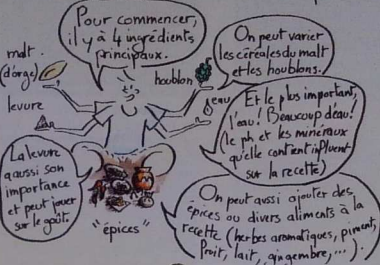 Pour commencer,
il y à 4 ingrédients
principaux.
malt
(d'orge)
levure
houblon
eau
On peut varier
les céréales du malt
et les houblons.
Et le plus important,
l'eau! Beaucoup d'eau!
(le ph et les minéraux
qu'elle contient influent
sur la recette)
La levure
a aussi son
importance
et peut jouer
sur le goût.
"épices"
On peut aussi ajouter des
épices ou divers aliments à la
recette (herbes aromatiques, piment,
fruit, lait, gingembre,...).